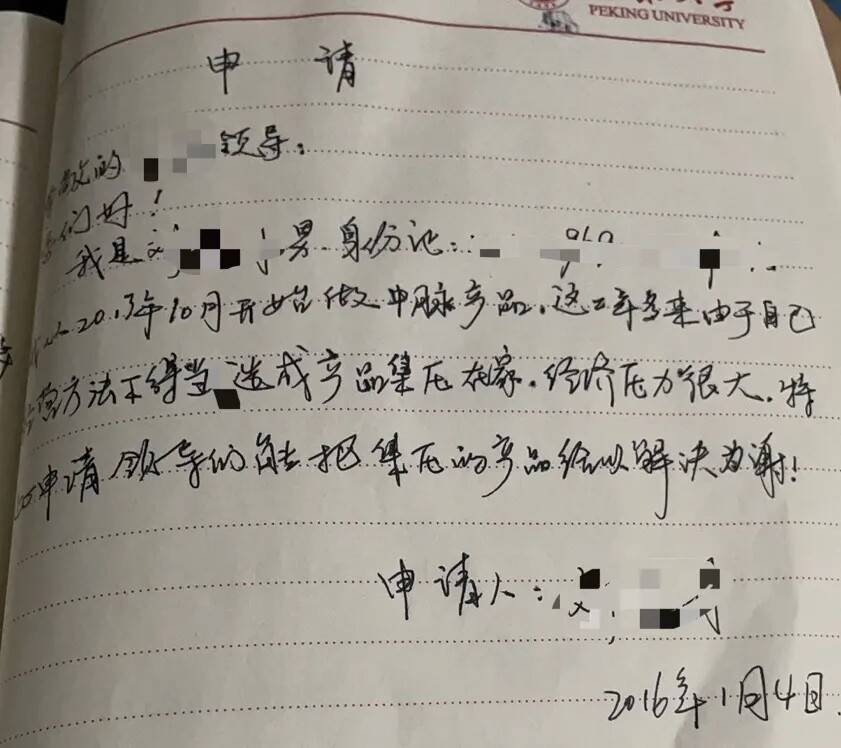 PEKING UNIVERSITY
申 请
敬的 领导：
们好！
我是 男 身份证：
2013年10月开始做中脉产品，这二年多来由于自己
营方法不得当，造成产品集压在家，经济压力很大，特
申请领导的能把集压的产品给以解决为谢！
申请人：
2016年1月4日